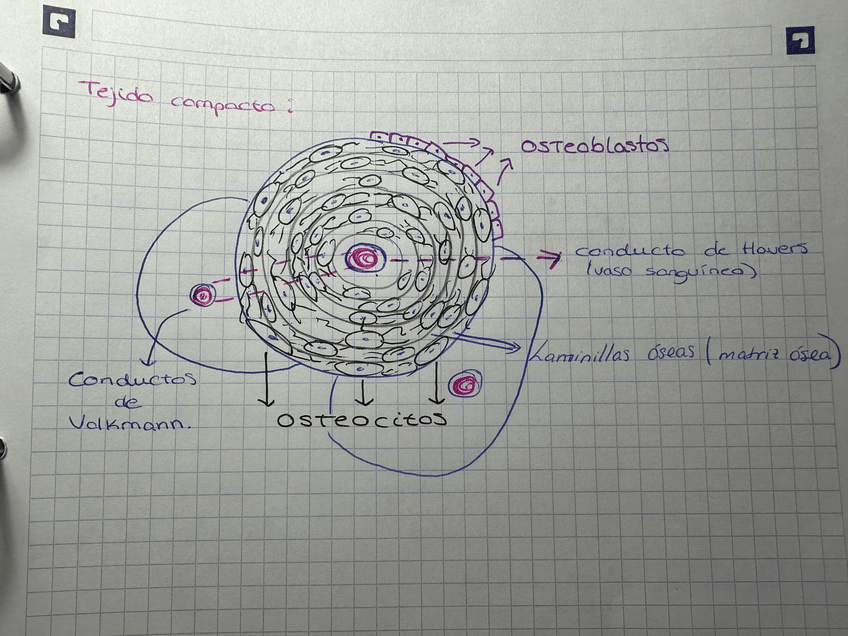 Tejido compacto:
osteoblastos
conducto de Havers
(vaso sanguíneo)
Laminillas óseas (matriz ósea)
Conductos
de
Volkmann.
Osteocitos